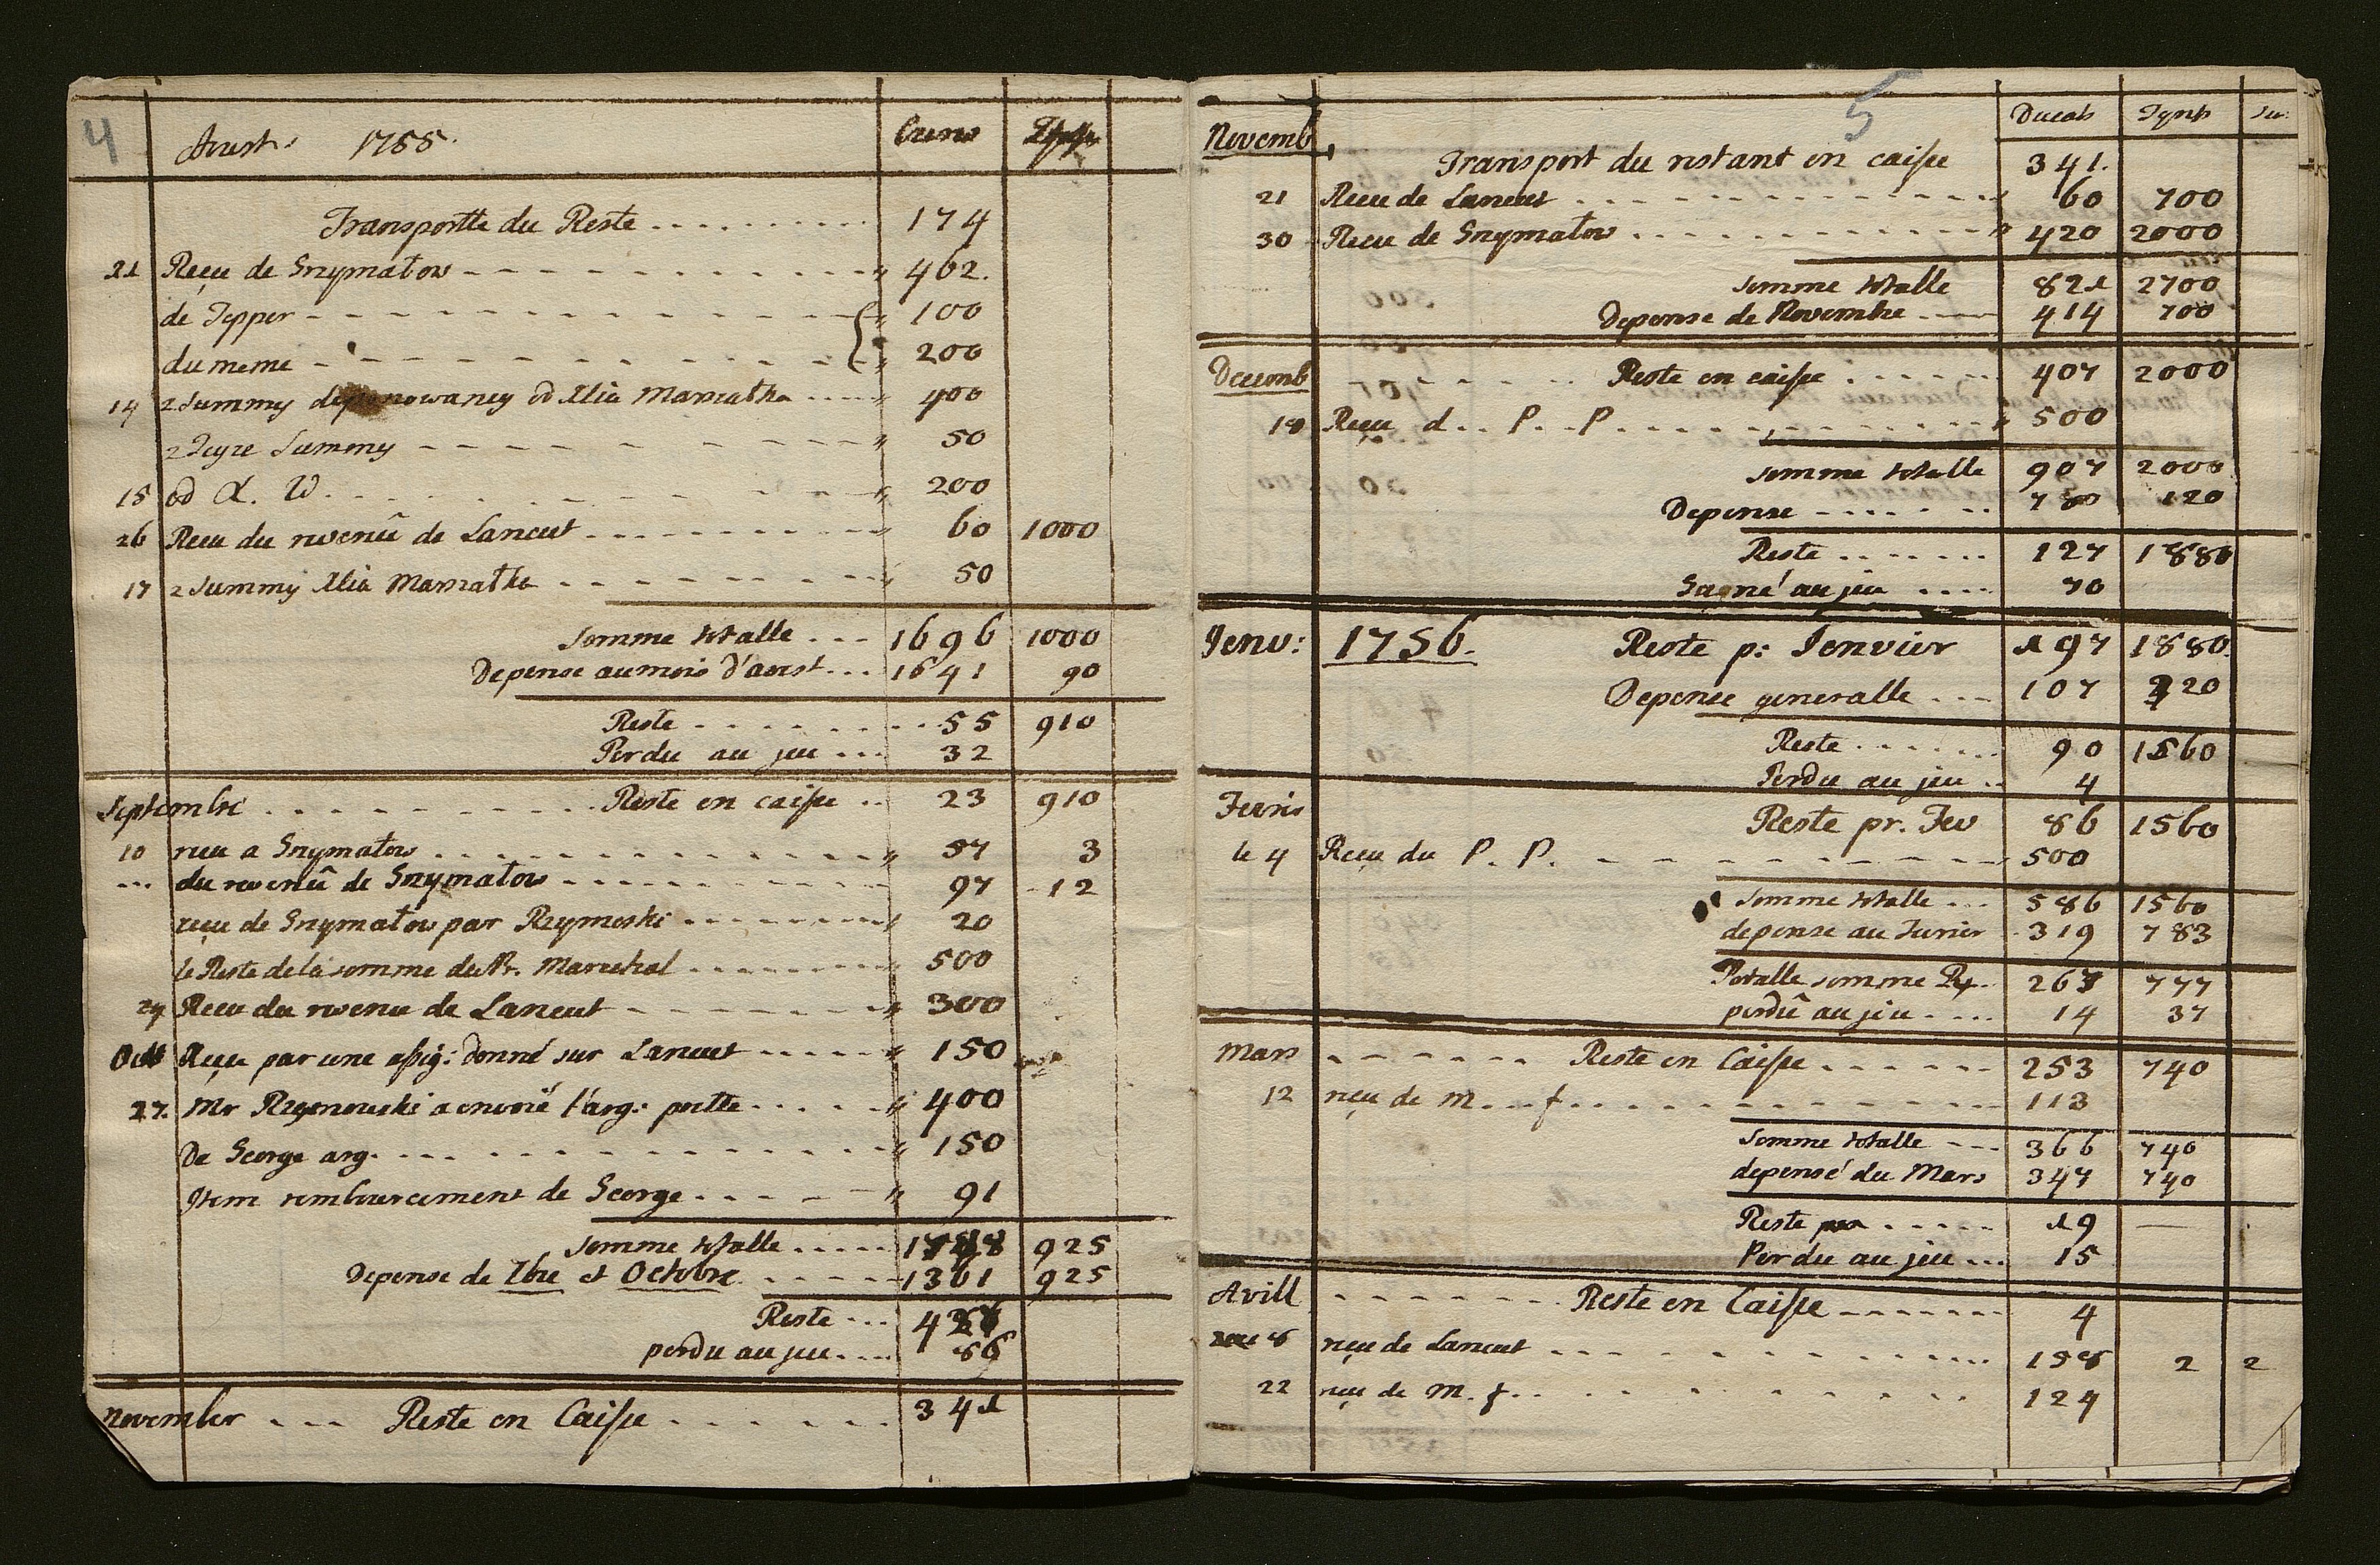 4
Aoust. 1755.
Transportte du Reste ......... 174
21 Reçu de Szymatow - - - - " 462.
de Tepper - - - - " 100
du meme - - - - " 200
14 z Summy deponowaney od Xcia Marszałka .... " 400
z Teyze Summy - - - - " 50
15 od X. W. - - - - " 200
26 Recu du revenû de Lancut - - - - " 60 1000
17 z Summy Xcia Marszałka - - - - " 50
Somme totalle ... 1696 1000
Depense au mois d'aoust ... 1641 90
Reste ........ 55 910
Perdu au jeu ... 32
Septembre ......... Reste en caisse .. 23 910
10 recu a Szymatow ........ " 57 3
... du revenû de Szymatow - - - - 97 12
reçu de Szymatow par Rzymoski - - - - " 20
le Reste de la somme du Pr. Marechal - - - - " 500
24 Recu du revenu de Lancut - - - - " 300
Octb Reçu par une assig: donné sur Lancut - - - - " 150
27. Mr Rzymowski a envoié l'arg: pr tte ..... " 400
De George arg. ... - - - - " 150
Item remboursement de George - - - - " 91
Somme totalle ..... 1788 925
Depense de 7bre et Octobre ..... 1361 925
Reste ... 427
perdu au jeu .... 86
November ... Reste en Caisse ...... 341
5
Ducats Tynfs
Novemb.
Transport du restant en caisse 341.
21 Recu de Lancut - - - - " 60 700
30 Recu de Szymatow - - - - " 420 2000
Somme totalle 821 2700
Depense de Novembre ---- 414 700
Decemb - - - - Reste en caisse ...... 407 2000
18 Reçu d.. P.. P. ........ " 500
Somme totalle 907 2000
Depense ------- 780 120
Reste ....... 127 1880
Gagné au jeu .... 70
Jenv: 1756. Reste p: Jenvier 197 1880.
Depense generalle ... 107 320
Reste ...... 90 1560
Perdu au jeu .. 4
Fevrie
Reste pr. Fev 86 1560
le 4 Reçu du P. P. - - - - 500
Somme totalle ... 586 1560
depense au Fevrier 319 783
Totalle somme 267 777
perdû au jeu .... 14 37
Mars - - - - Reste en Caisse ...... 253 740
12 reçu de M... f.. - - - - 113
Somme totalle --- 366 740
depensé du Mars 347 740
Reste ..... 19 —
Perdu au jeu ... 15
Avill - - - - Reste en Caisse ------ 4
8 reçu de Lancut ... - - - - 158 2 2
22 reçu de M. f.. . . . . 124